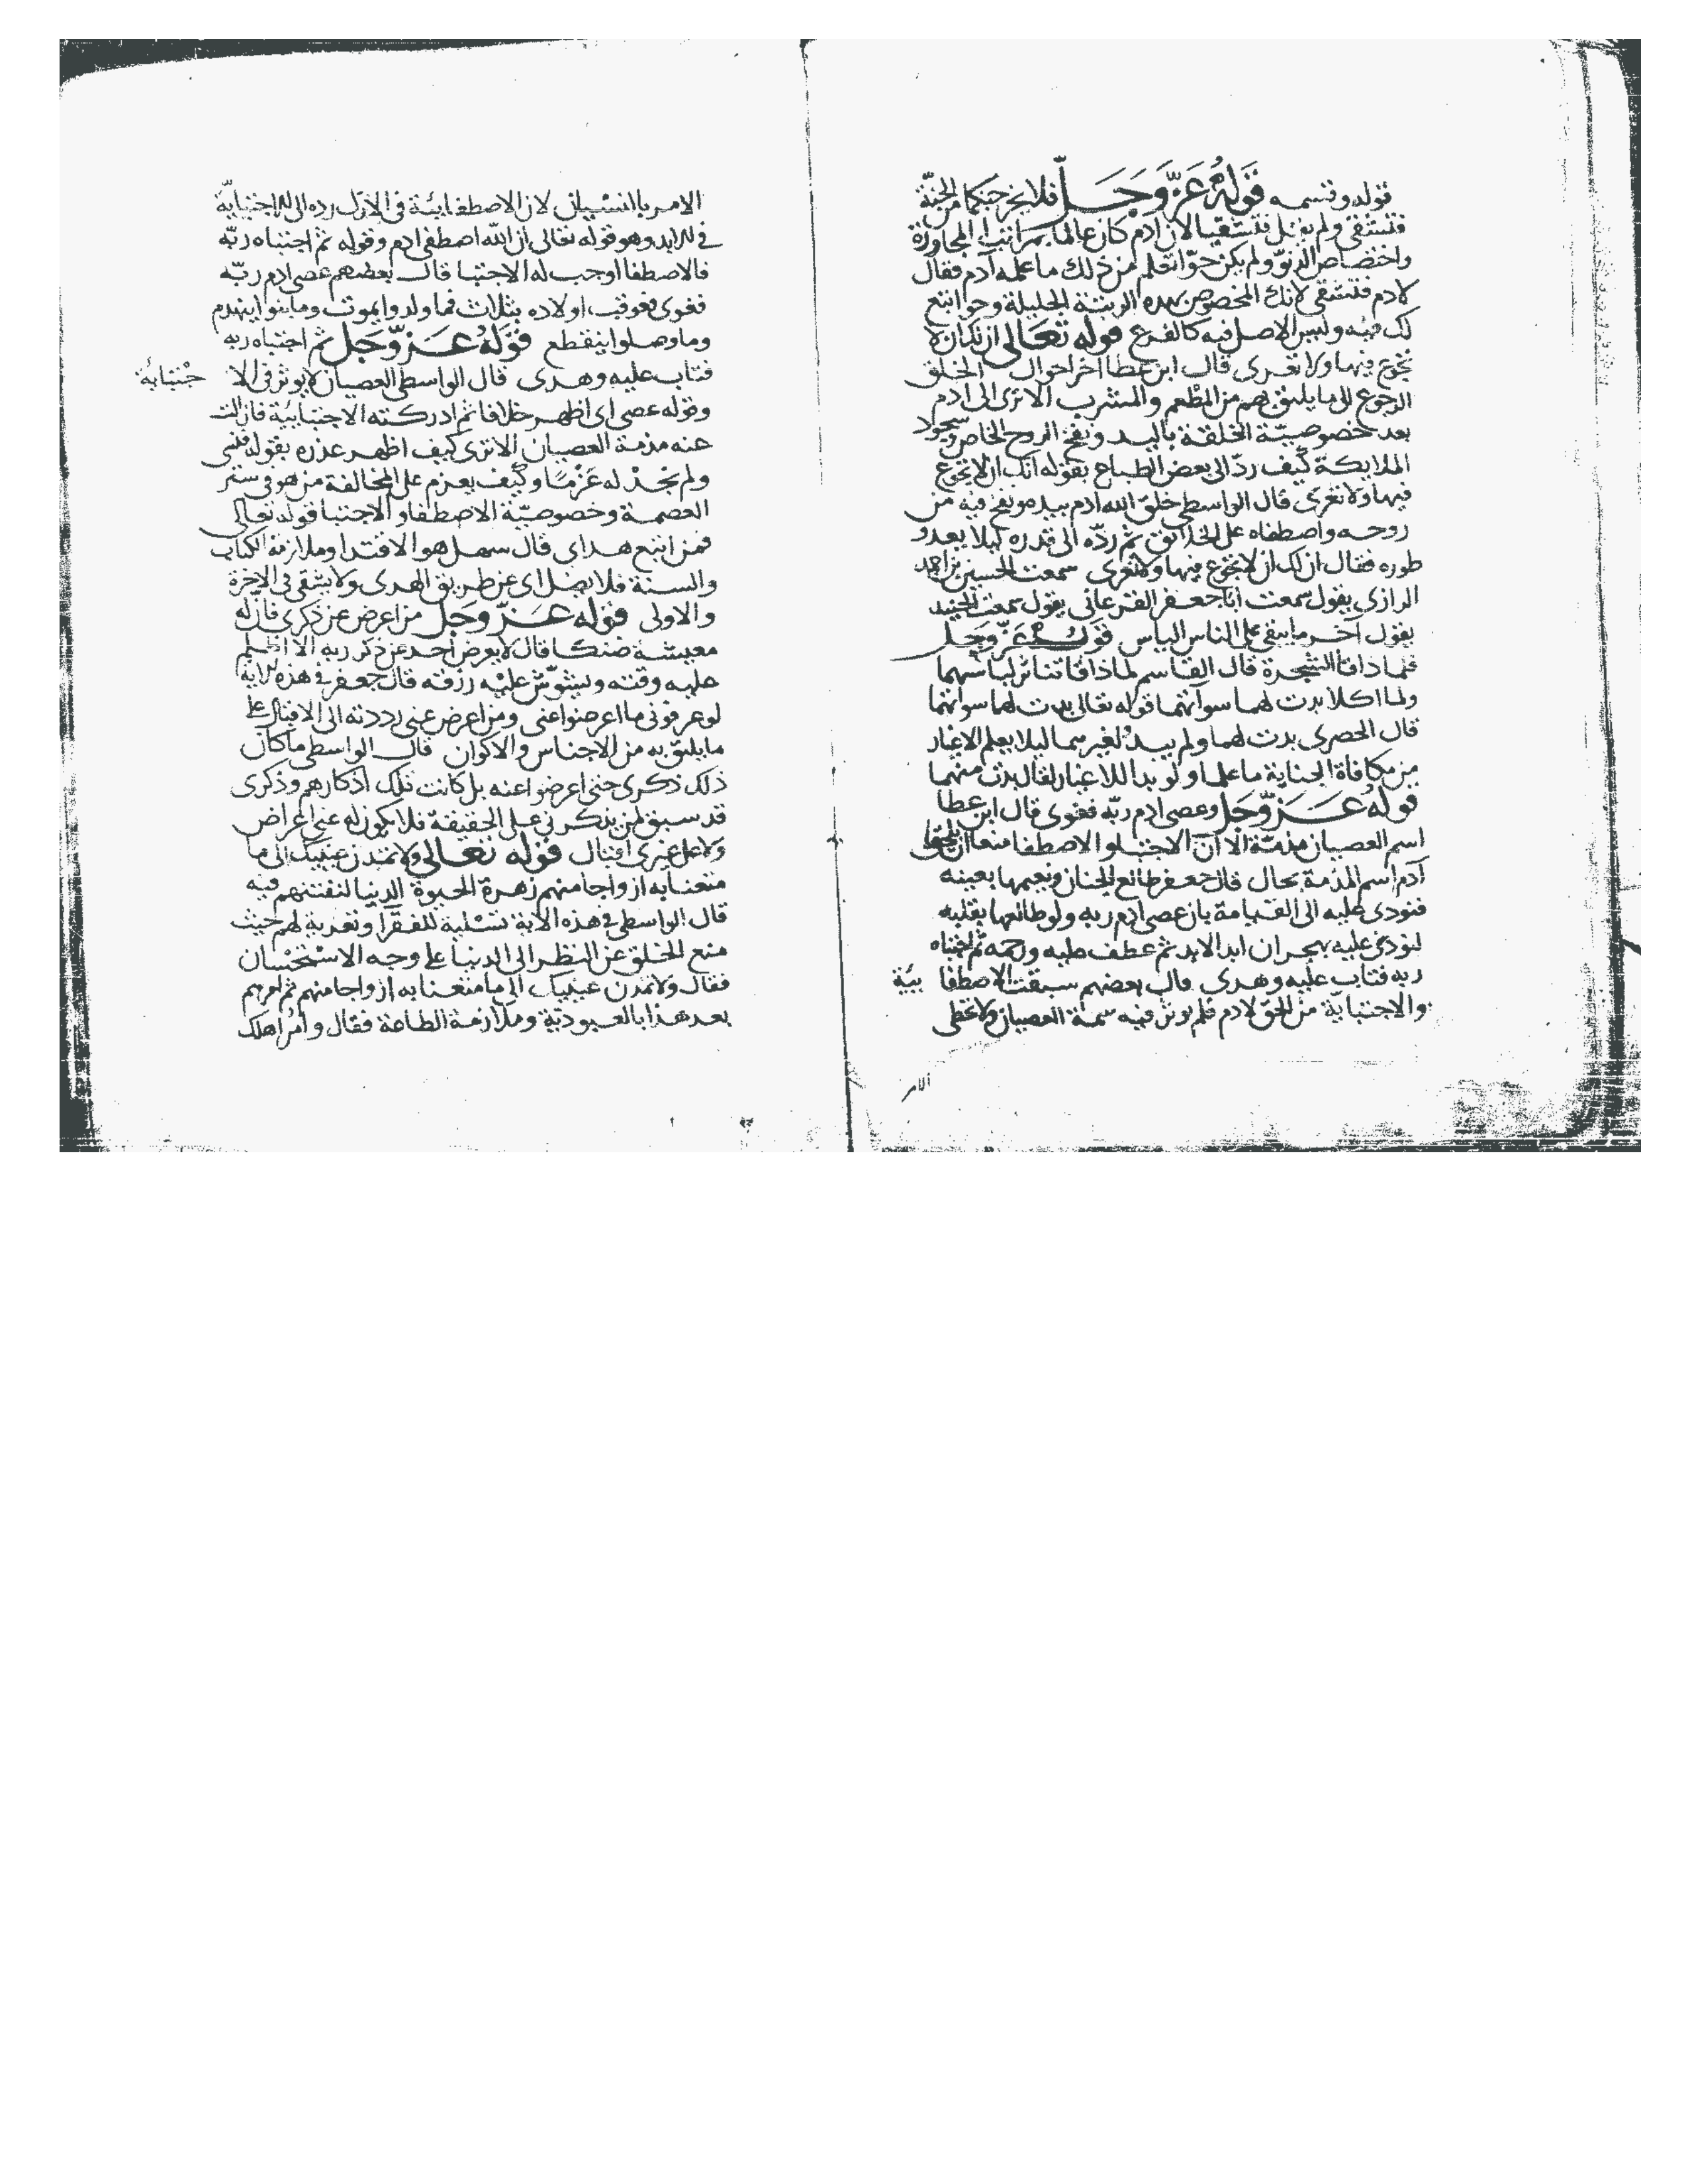 قوله وقسمه قوله عَزَّوَجَلَّ فلا يخرجنكما من الجنة
فتشقى ولم يقل فتشقيا لان ادم كان عالما بمراتب المجاورة
واختصاص الدنوّ ولم يكن حوّا تعلم من ذلك ما علمه آدم فقال
لادم فتشقى لانك المخصوص بهذه الرتبة الجليلة وحوا تبع
لك فيه وليس الاصل فيه كالفرع قوله تعالى ان لك ان لا
تجوع فيها ولا تعرى قال ابن عطا اخر احوال الخلق
الرجوع الى ما يليق بهم من المطعم والمشرب الا ترى الى ادم
بعد خصوصيّة الخلقة باليد ونفخ الروح الخاص وسجود
الملايكة كيف ردّ الى بعض الطباع بقوله ان لك ان لا تجوع
فيها ولا تعرى قال الواسطى خلق الله ادم بيده ونفخ فيه من
روحه واصطفاه على الخلائق ثم ردّه الى قدره كيلا يعدو
طوره فقال ان لك ان لا تجوع فيها ولا تعرى سمعت الحسين بن احمد
الرازى يقول سمعت ابا جعفر الفرغانى يقول سمعت الجنيد
يقول آخر ما يبقى على الناس الباس قوله عَزَّوَجَلَّ
فلما ذاقا الشجرة قال القاسم لما ذاقا تناثر لباسهما
ولما اكلا بدت لهما سوآتهما قوله تعالى بدت لهما سوآتهما
قال الحصرى بدت لهما ولم يبد لغيرهما ليلا يعلم الاغيار
من مكافاة الجناية ما علما ولو بدا للاغيار لقال بدت منهما
قوله عَزَّوجَل وعصى ادم ربّه فغوى قال ابن عطا
اسم العصيان مذمّة الا انّ الاجتبا والاصطفا منعا ان يلحق
آدم اسم المذمة بحال قال جعفر طالع الجنان ونعيمها بعينه
فنودى عليه الى القيامة بان عصى ادم ربه ولو طالعها بقلبه
لنودى عليه بهجران ابد الابد ثم عطف عليه ورحمه ثم اجتباه
ربه فتاب عليه وهدى قال بعضهم سبقت الاصطفا ييّة
والاجتبايّة من الحق لادم فلم يوثر فيه سمة العصيان ولا تخطى
الامر
الامر بالنسيان لان الاصطفاييّة فى الازل رده الى الاجتبايّة
فى الابد وهو قوله تعالى ان الله اصطفى ادم وقوله ثم اجتباه ربّه
فالاصطفا اوجب له الاجتبا قال بعضهم عصى ادم ربّه
فغوى فعوقب اولاده بثلاث فما ولدوا يموت وما بنوا ينهدم
وما وصلوا ينقطع قوله عَزَّوَجَل ثم اجتباه ربه
فتاب عليه وهدى قال الواسطى العصيان لا يوثر فى الا جتبايّة
وقوله عصى اى اظهر خلافا ثم ادركته الاجتباييّة فازالت
عنه مذمة العصيان الا ترى كيف اظهر عذره بقوله فنسى
ولم نجد له عَزْمًا وكيف يعزم على المخالفة من هو فى ستر
العصمة وخصوصيّة الاصطفا والاجتبا قوله تعالى
فمن اتبع هداى قال سهل هو الاقتدا وملازمة الكتاب
والسنة فلا يضل اى عن طريق الهدى ولا يشقى فى الاخرة
والاولى قوله عَزَّ وَجَل من اعرض عن ذكرى فان له
معيشة ضنكا قال لا يعرض احد عن ذكر ربه الا اظلم
عليه وقته ويشوّش عليه رزقه قال جعفر فى هذه الاية
لو عرفونى ما اعرضوا عنى ومن اعرض عنى رددته الى الاقبال على
ما يليق به من الاجناس والاكوان قال الواسطى ما كان
ذلك ذكرى حتى اعرضوا عنه بل كانت تلك اذكارهم وذكرى
قد سبق لمن يذكرنى على الحقيقة فلا يكون له عنى اعراض
ولا على غيرى اقبال قوله تعالى ولا تمدن عينيك الى ما
متعنا به ازواجا منهم زهرة الحيوة الدنيا لنفتنهم فيه
قال الواسطى فى هذه الاية تسلية للفقرآ وتعزية لهم حيث
منع الخلق عن النظر الى الدنيا على وجه الاستحسان
فقال ولا تمدن عينيك الى ما متعنا به ازواجا منهم ثم امرهم
بعد هذا بالعبوديّة وملازمة الطاعة فقال وامر اهلك